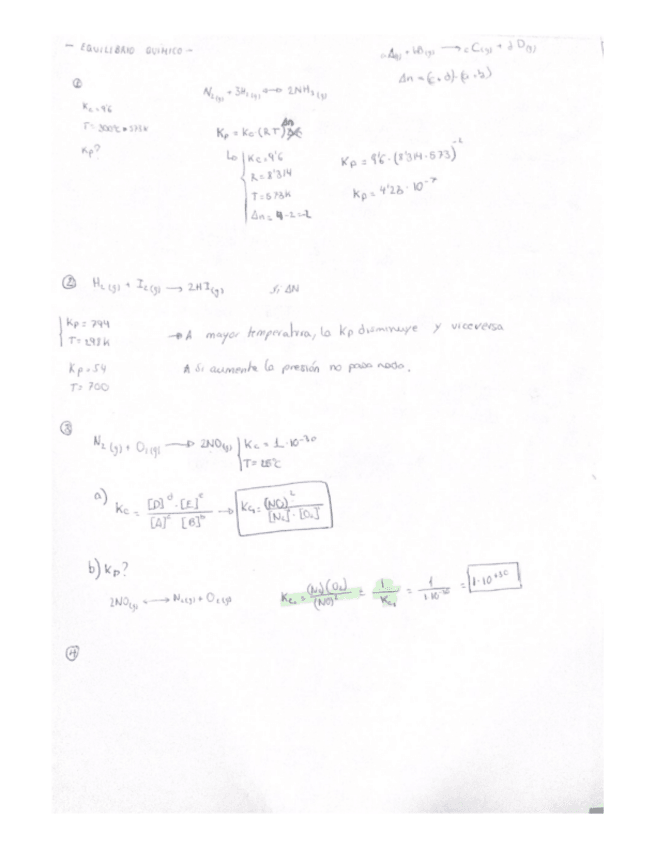 - EQUILIBRIO QUÍMICO -
A(g) + bB(g) → cC(g) + dD(g)
Δn = (c+d)-(a+b)
①
N2(g) + 3H2(g) ↔ 2NH3(g)
Kc = 9'6
T = 300ºC = 573K
Kp?
Kp = Kc · (RT)^Δn
Kc = 9'6
R = 8'314
T = 573K
Δn = 4-2 = -2
Kp = 9'6 · (8'314 · 573)^-2
Kp = 4'23 · 10^-7
② H2(g) + I2(g) → 2HI(g)
Si ΔN
Kp = 794
T = 298K
→ A mayor temperatura, la Kp disminuye y viceversa
Kp = 54
T = 700
Si aumenta la presión no pasa nada.
③
N2(g) + O2(g) → 2NO(g)
Kc = 1·10^-30
T = 25ºC
a) Kc = [D]^d · [E]^e / [A]^a [B]^b → Kc1 = (NO)^2 / [N2] · [O2]
b) Kp?
2NO(g) ↔ N2(g) + O2(g)
Kc2 = (N2)(O2) / (NO)^2 = 1 / Kc1 = 1 / 1·10^-30 = 1·10^+30
④